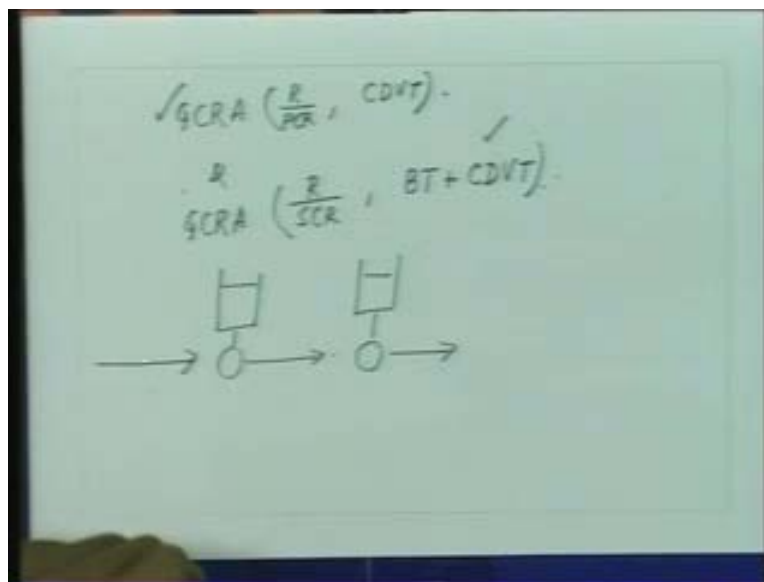 ✓GCRA (R/PCR, CDVT).
&
GCRA (R/SCR, BT + CDVT).